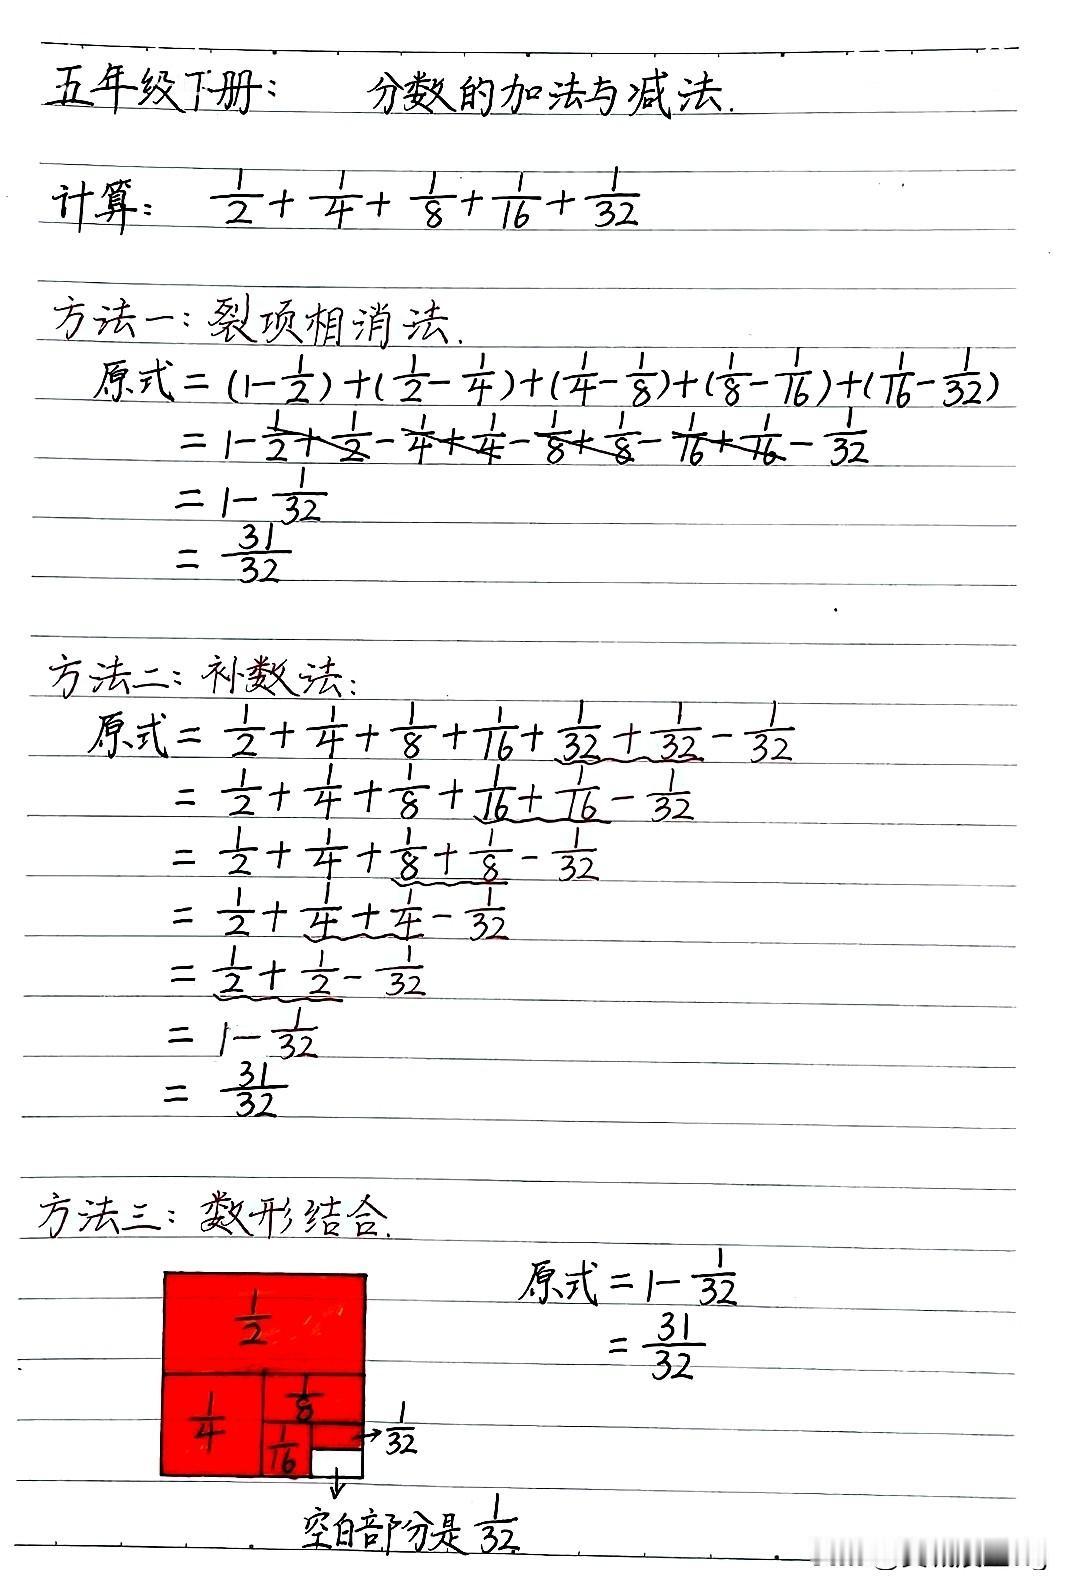 五年级下册： 分数的加法与减法.
计算： 1/2 + 1/4 + 1/8 + 1/16 + 1/32
方法一：裂项相消法.
原式 = (1 - 1/2) + (1/2 - 1/4) + (1/4 - 1/8) + (1/8 - 1/16) + (1/16 - 1/32)
= 1 - 1/2 + 1/2 - 1/4 + 1/4 - 1/8 + 1/8 - 1/16 + 1/16 - 1/32
= 1 - 1/32
= 31/32
方法二：补数法：
原式 = 1/2 + 1/4 + 1/8 + 1/16 + 1/32 + 1/32 - 1/32
= 1/2 + 1/4 + 1/8 + 1/16 + 1/16 - 1/32
= 1/2 + 1/4 + 1/8 + 1/8 - 1/32
= 1/2 + 1/4 + 1/4 - 1/32
= 1/2 + 1/2 - 1/32
= 1 - 1/32
= 31/32
方法三：数形结合.
原式 = 1 - 1/32
= 31/32
1/2
1/4
1/8
1/16
1/32
空白部分是 1/32